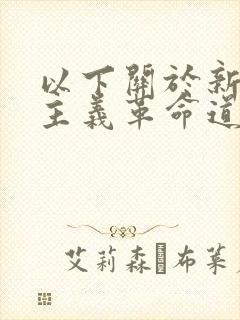 以下關於新
主義革命道
艾莉森·布萊